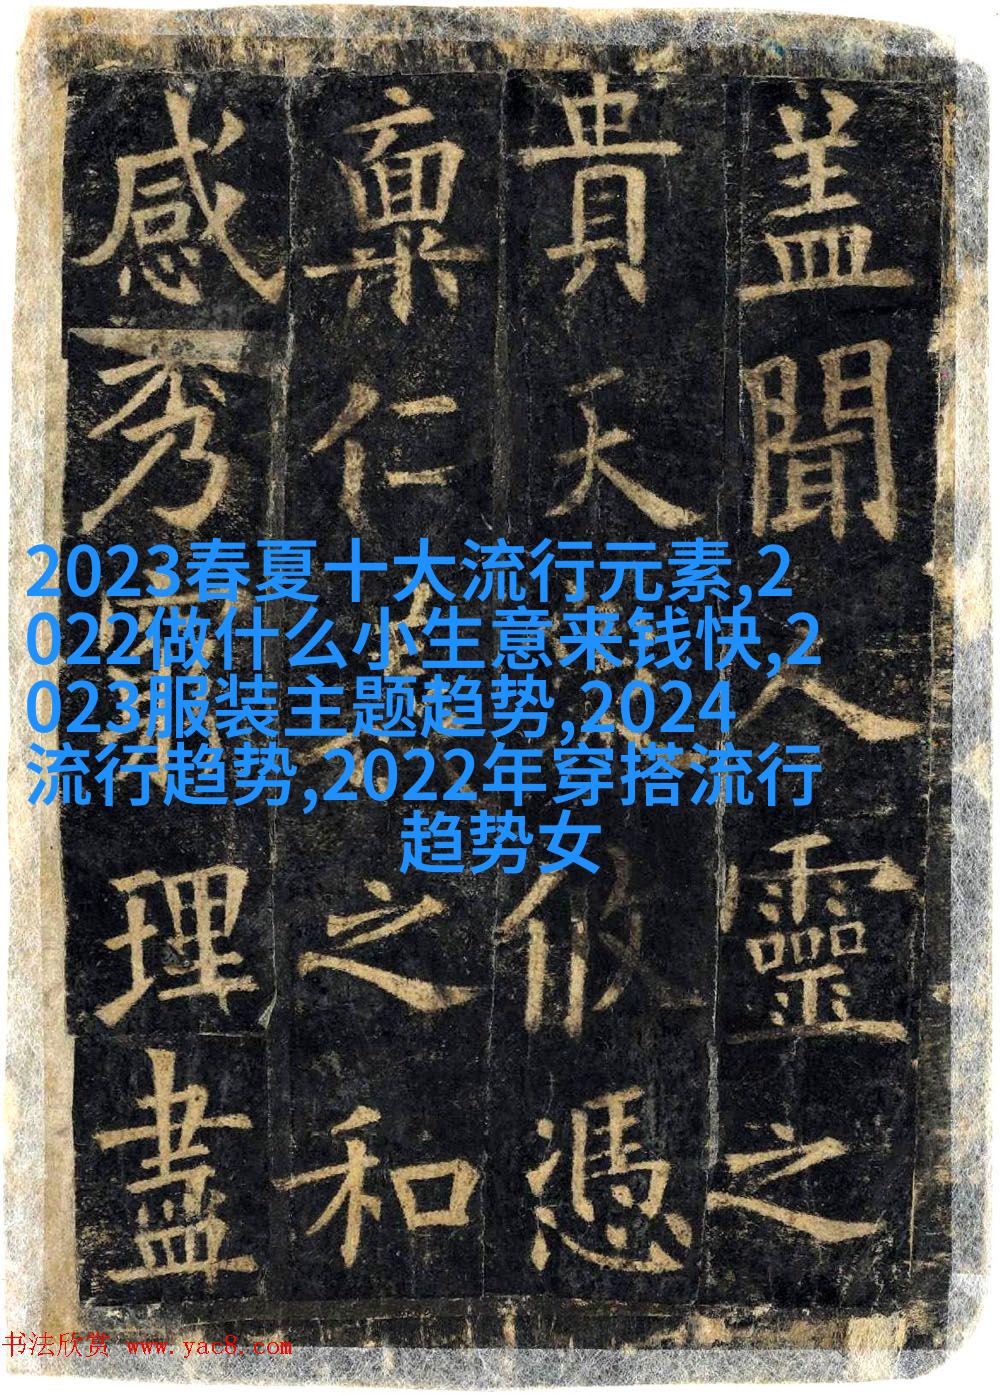 盖聞人靈之
貴天攸憑
稟仁之和
感秀理盡
2023春夏十大流行元素,2
022做什么小生意来钱快,2
023服装主题趋势,2024
流行趋势,2022年穿搭流行
趋势女
书法欣赏 www.yac8.com